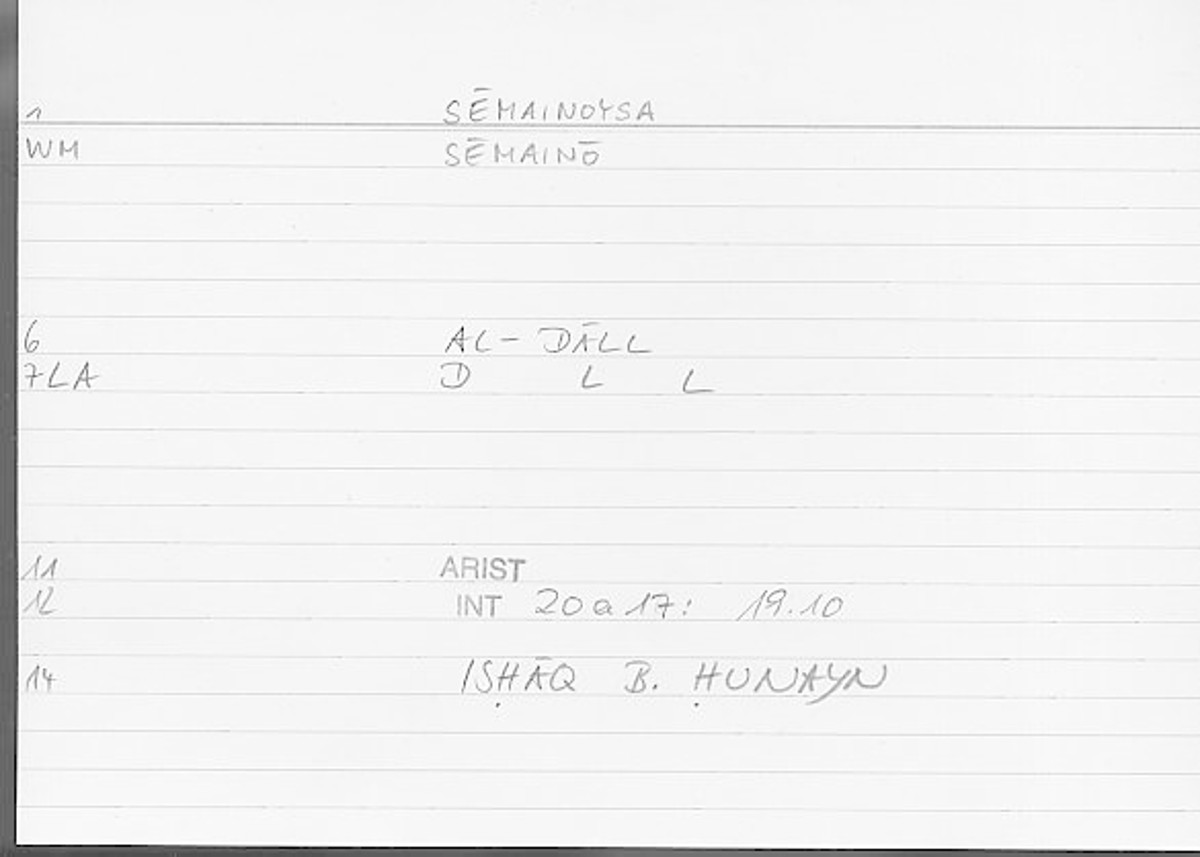 1 SĒMAINOYSA
WM SĒMAINŌ
6 AL-DĀLL
7LA D L L
11 ARIST
12 INT 20a17: 19.10
14 ISḤĀQ B. ḤUNAYN